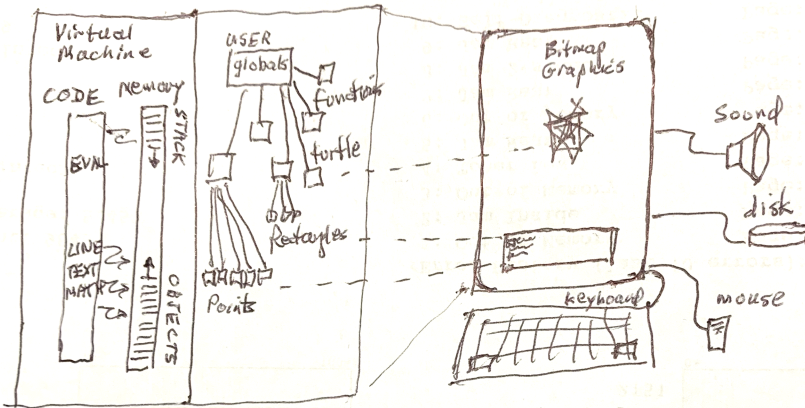 Virtual
Machine
CODE
Memory
STACK
EVAL
LINE
TEXT
MATH
OBJECTS
USER
globals
functions
turtle
Rectangles
Points
Bitmap
Graphics
keyboard
Sound
disk
mouse